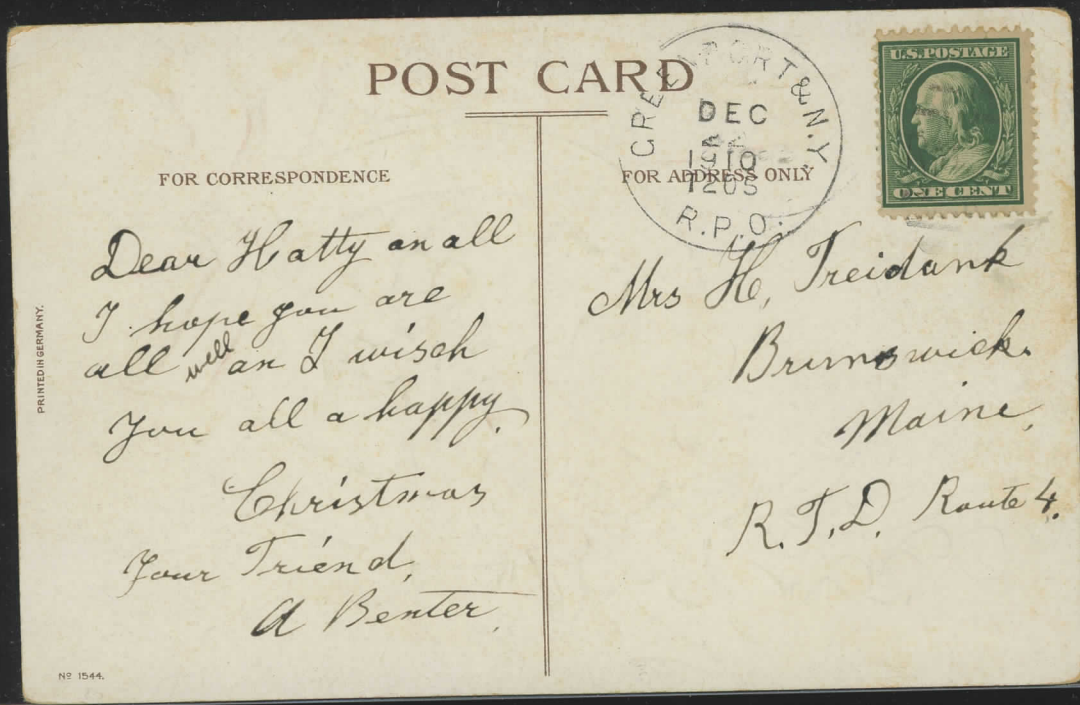 POST CARD
GREENPORT & N.Y.
DEC
22
1910
1205
R.P.O.
U.S. POSTAGE
ONE CENT
FOR CORRESPONDENCE
FOR ADDRESS ONLY
Dear Hatty an all
I hope you are
all well an I wisch
You all a happy.
Christmas
Your Friend,
A Benter.
Mrs H, Treidank
Brunswick.
Maine,
R.F.D. Route 4.
PRINTED IN GERMANY.
Nº 1544.